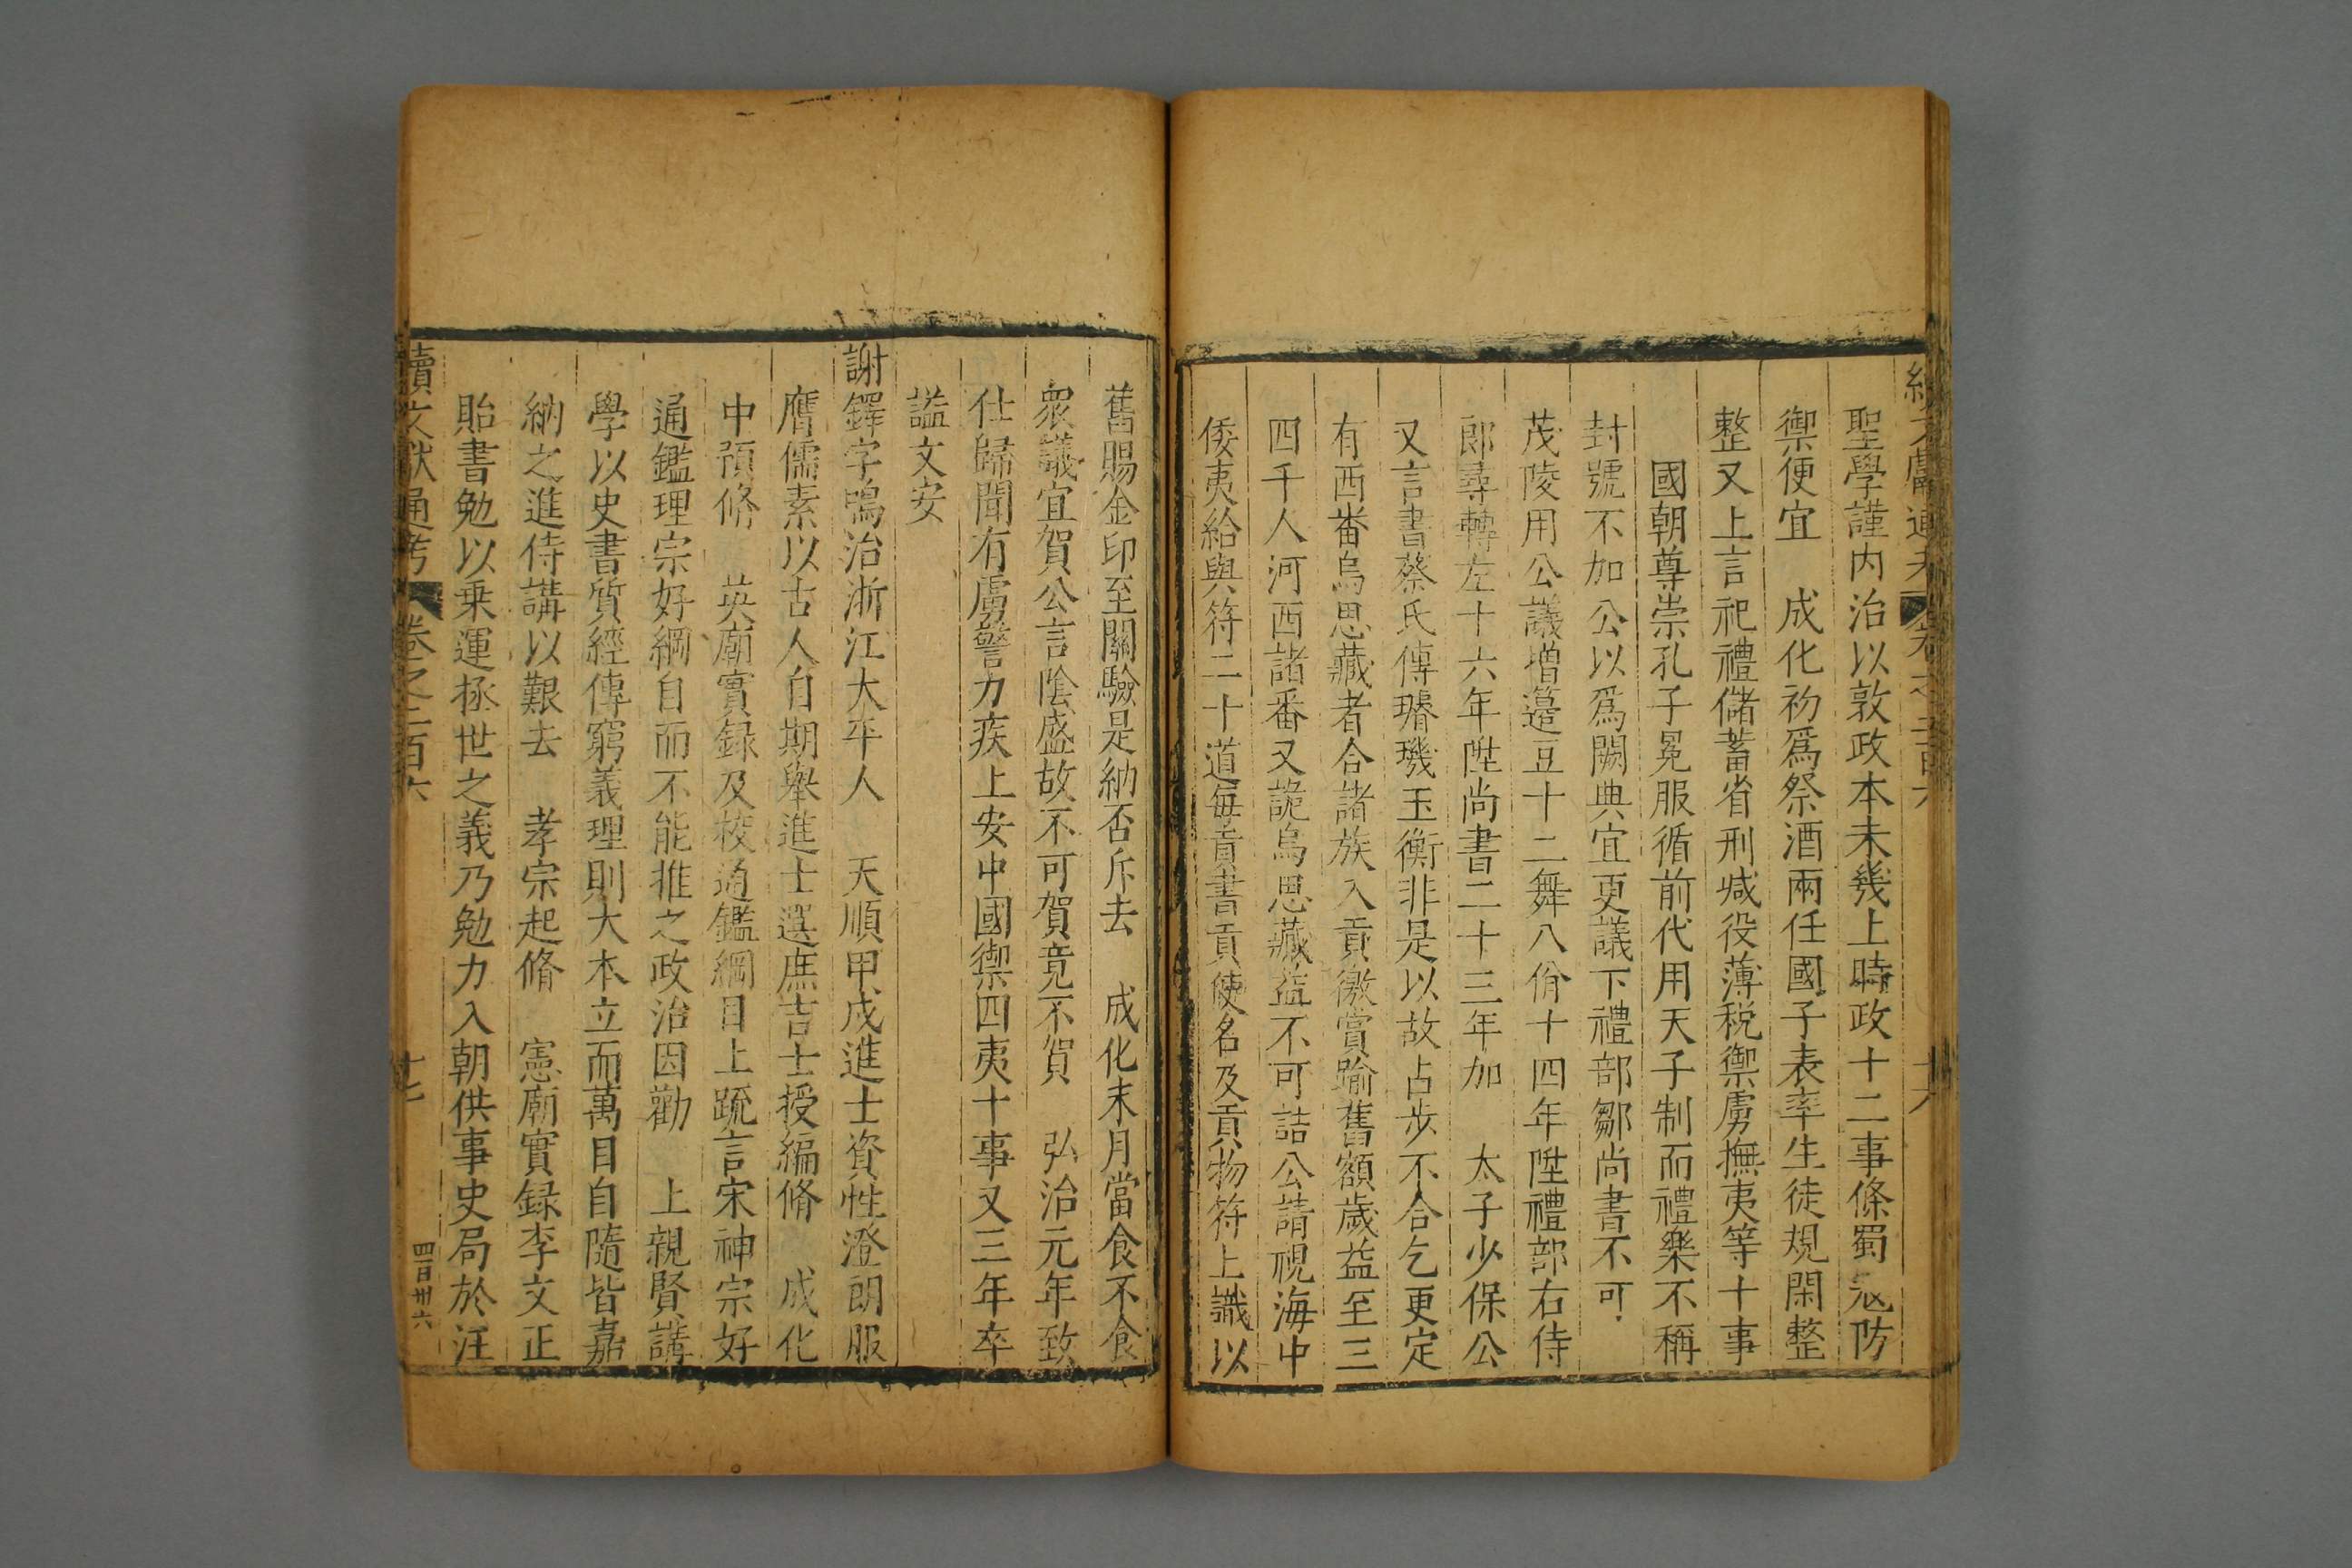 聖學謹内治以敦政本未幾上時政十二事條蜀冦防
禦便宜　成化初爲祭酒兩任國子表率生徒規閑整
整又上言祀禮儲蓄省刑減役薄税禦虜撫夷等十事
國朝尊崇孔子冕服循前代用天子制而禮樂不稱
封號不加公以爲闕典宜更議下禮部鄒尚書不可
茂陵用公議增籩豆十二舞八佾十四年陞禮部右侍
郎尋轉左十六年陞尚書二十三年加　太子少保公
又言書蔡氏傳璿璣玉衡非是以故占步不合乞更定
有西番烏思藏者合諸族入貢徼賞踰舊額歲益至三
四千人河西諸番又詭烏思藏益不可詰公請視海中
倭夷給與符二十道每貢書貢使名及貢物符上識以
舊賜金印至關驗是納否斥去　成化末月當食不食
衆議宜賀公言陰盛故不可賀竟不賀　弘治元年致
仕歸聞有虜警力疾上安中國禦四夷十事又三年卒
謚文安
謝鐸字鳴治浙江太平人　天順甲戍進士資性澄朗服
膺儒素以古人自期舉進士選庶吉士授編脩　成化
中預脩　英廟實録及校通鑑綱目上疏言宋神宗好
通鑑理宗好綱目而不能推之政治因勸　上親賢講
學以史書質經傳窮義理則大本立而萬目自隨皆嘉
納之進侍講以艱去　孝宗起脩　憲廟實録李文正
貽書勉以乗運拯世之義乃勉力入朝供事史局於汪
續文獻通考　卷之二百六　十七　四百卅六